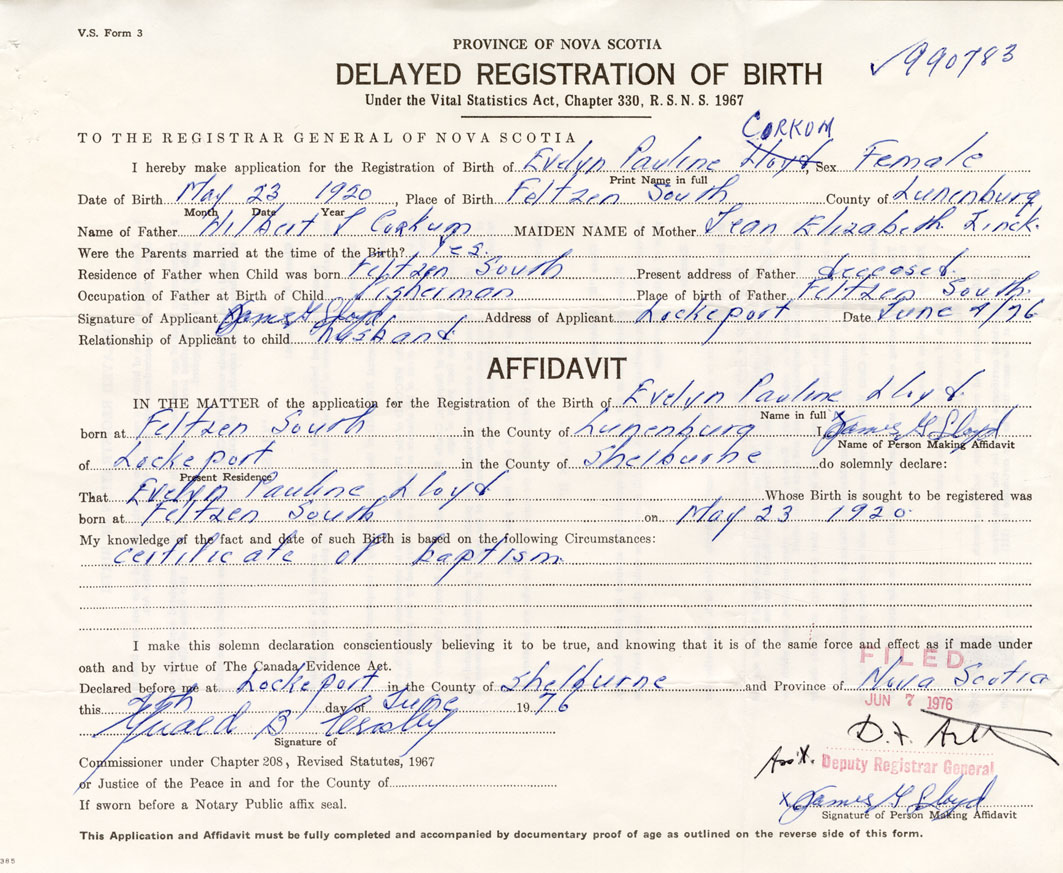 V.S. Form 3
PROVINCE OF NOVA SCOTIA
✓990783
DELAYED REGISTRATION OF BIRTH
Under the Vital Statistics Act, Chapter 330, R.S.N.S. 1967
TO THE REGISTRAR GENERAL OF NOVA SCOTIA
CORKUM
I hereby make application for the Registration of Birth of Evelyn Pauline Lloyd, Sex Female
Print Name in full
Date of Birth May 23 1920, Place of Birth Feltzen South County of Lunenburg
Month Date Year
Name of Father Hilbert L Corkum MAIDEN NAME of Mother Jean Elizabeth Zinck.
Were the Parents married at the time of the Birth? Yes.
Residence of Father when Child was born Feltzen South Present address of Father deceased.
Occupation of Father at Birth of Child Fisherman Place of birth of Father Feltzen South.
Signature of Applicant James G Lloyd Address of Applicant Lockeport Date June 4/76
Relationship of Applicant to child husband
AFFIDAVIT
IN THE MATTER of the application for the Registration of the Birth of Evelyn Pauline Lloyd.
Name in full
born at Feltzen South in the County of Lunenburg I, James G Lloyd
Name of Person Making Affidavit
of Lockeport in the County of Shelburne do solemnly declare:
Present Residence
That Evelyn Pauline Lloyd Whose Birth is sought to be registered was
born at Feltzen South on May 23 1920.
My knowledge of the fact and date of such Birth is based on the following Circumstances:
certificate of baptism.
I make this solemn declaration conscientiously believing it to be true, and knowing that it is of the same force and effect as if made under
oath and by virtue of The Canada Evidence Act.
FILED
Declared before me at Lockeport in the County of Shelburne and Province of Nova Scotia
this day of June 1976
JUN 7 1976
B
Signature of
D.F.
Commissioner under Chapter 208, Revised Statutes, 1967
Deputy Registrar General
or Justice of the Peace in and for the County of
X James G Lloyd
If sworn before a Notary Public affix seal.
Signature of Person Making Affidavit
This Application and Affidavit must be fully completed and accompanied by documentary proof of age as outlined on the reverse side of this form.
385